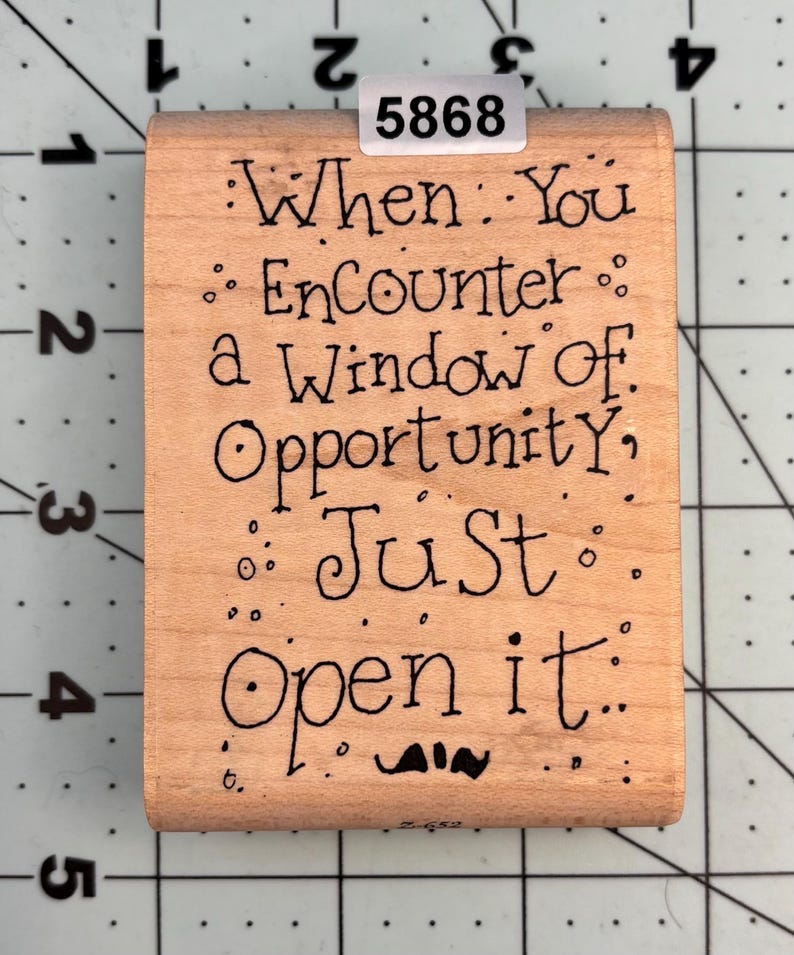 1 2 3 4
5868
1
2
3
4
5
When You
EnCounter
a Window of
Opportunity,
Just
Open it..
Z-652